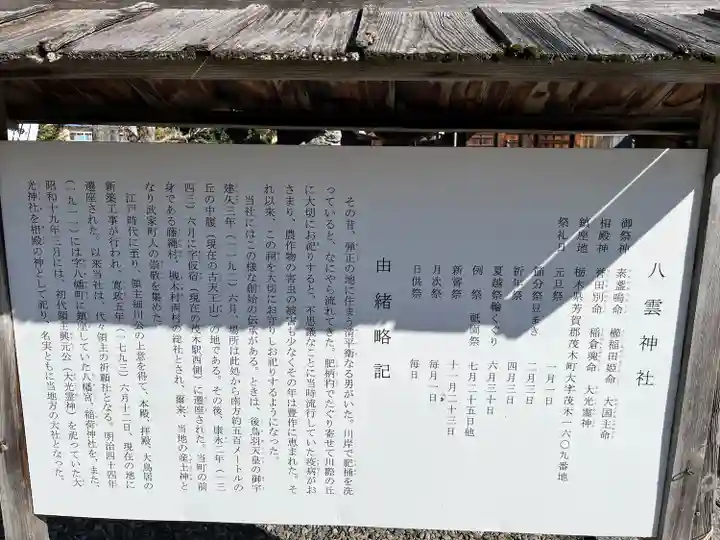 八雲神社
御祭神　素盞嗚命　櫛稲田姫命　大国主命
相殿神　誉田別命　稲倉魂命　大光霊神
鎮座地　栃木県芳賀郡茂木町大字茂木一六〇九番地
祭礼日　元旦祭　一月一日
節分祭豆まき　二月三日
祈年祭　四月三日
夏越祭輪くぐり　六月三十日
例祭　祇園祭　七月二十五日他
新嘗祭　十一月二十三日
月次祭　毎月一日
日供祭　毎日
由緒略記
その昔、弾正の地に住まう清平衛なる男がいた。川岸で肥桶を洗
っていると、なにやら流れてきた。肥柄杓でたぐり寄せて川路の丘
に大切にお祀りすると、不思議なことに当時流行していた疫病がお
さまり、農作物の害虫の被害も少なくその年は豊作に恵まれた。そ
れ以来、この祠を大切にお守りしお祀りするようになった。
当社にはこの様な創始の伝承がある。ときは、後鳥羽天皇の御宇
建久三年（一一九二）六月、場所は此処から南方約五百メートルの
丘の中腹（現在の古天王山）の地である。その後、康永二年（一三
四三）六月に字仮宿（現在の茂木駅西側）に遷座された。当町の前
身である藤縄村、槻木村両村の総社とされ、爾来、当地の産土神と
なり武家町人の崇敬を集めた。
江戸時代に至り、領主細川公の上意を得て、本殿、拝殿、大鳥居の
新築工事が行われ、寛政五年（一七九三）六月十二日、現在の地に
遷座された。以来当社は、代々領主の祈願社となる。明治四十四年
（一九一一）には字八幡町に鎮座していた八幡宮、稲荷神社を、また、
昭和十九年三月には、初代領主興元公（大光霊神）を祀っていた大
光神社を相殿の神として祀り、名実ともに当地方の大社となった。